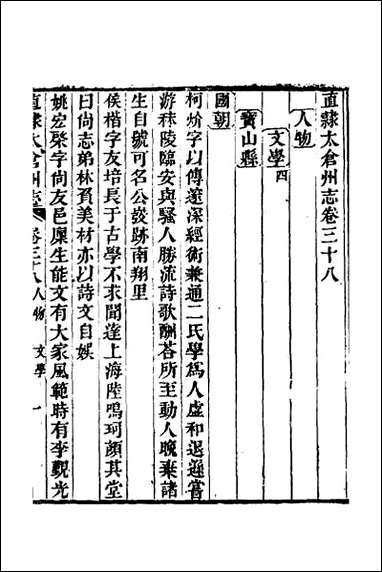 直隸太倉州志卷三十八
人物
文學四
寶山縣
國朝
柯炌字以傳邃深經術兼通二氏學爲人虛和退遜嘗
游秣陵臨安與騷人勝流詩歌酬荅所至動人晚棄諸
生自號可名公發跡南翔里
侯楷字友培長于古學不求聞達上海陸鳴珂顏其堂
曰尙志弟林質美材亦以詩文自娛
姚宏棨字尙友邑廩生能文有大家風範時有李觀光
直隸太倉州志 卷三十八人物 文學 一